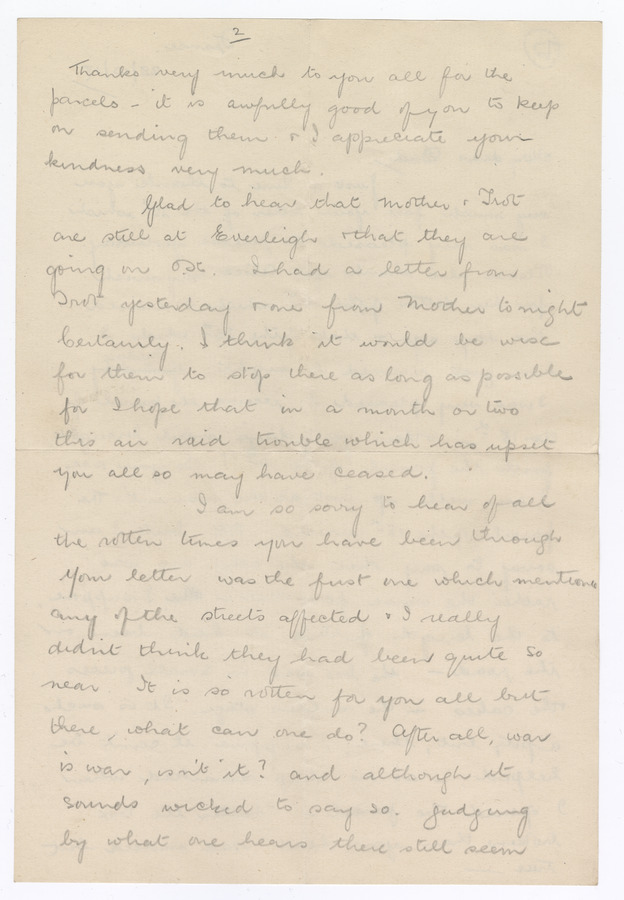 2
Thanks very much to you all for the
parcels - it is awfully good of you to keep
on sending them & I appreciate your
kindness very much.
Glad to hear that Mother & Trot
are still at Everleigh & that they are
going on O.K. I had a letter from
Trot yesterday & one from Mother tonight
Certainly. I think it would be wise
for them to stop there as long as possible
for I hope that in a month or two
this air raid trouble which has upset
you all so may have ceased.
I am so sorry to hear of all
the rotten times you have been through
Your letter was the first one which mentions
any of the streets affected & I really
didn't think they had been quite so
near It is so rotten for you all but
there, what can one do? After all, war
is war, isn't it? and although it
sounds wicked to say so. judging
by what one hears there still seem